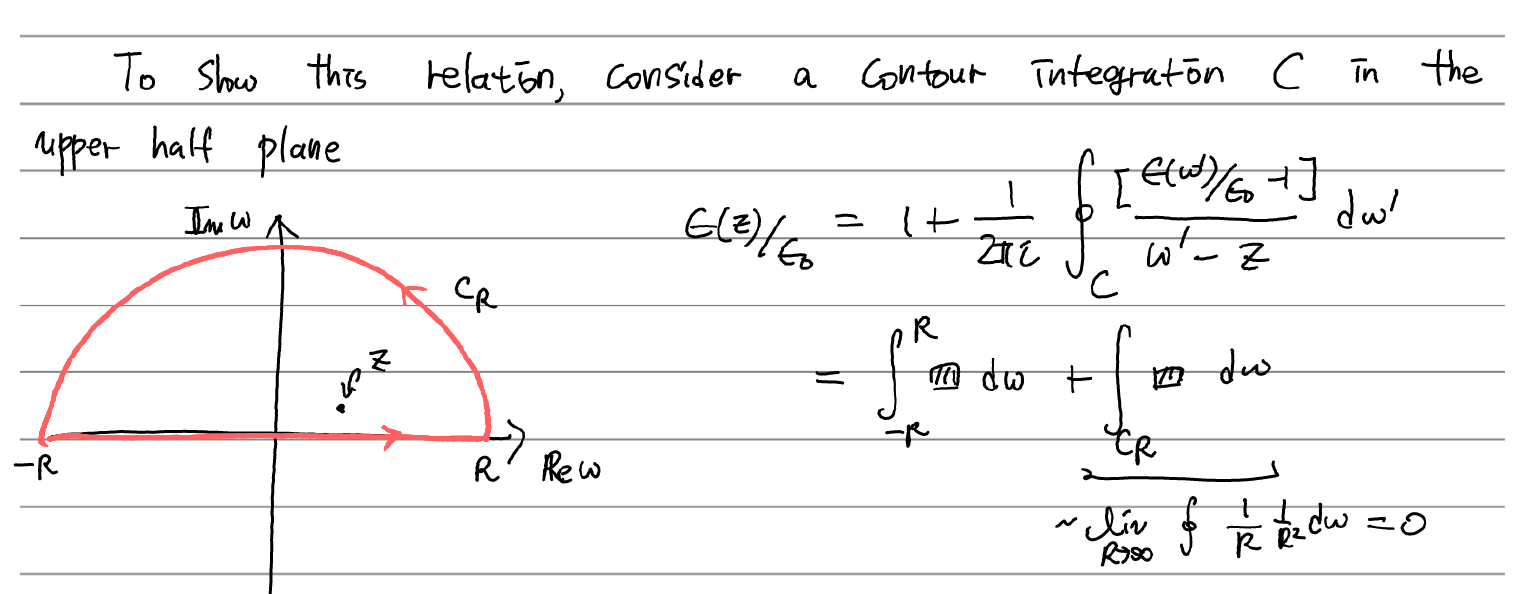 To show this relation, consider a contour integration C in the
upper half plane
Im ω
C_R
z
-R
R
Re ω
ε(z)/ε₀ = 1 + \frac{1}{2πi} ∮_C \frac{[ε(ω')/ε₀ -1]}{ω' - z} dω'
= ∫_{-R}^{R} ▥ dω + ∫_{C_R} ▥ dω
~ lim_{R→∞} ∮ \frac{1}{R} \frac{1}{R²} dω = 0